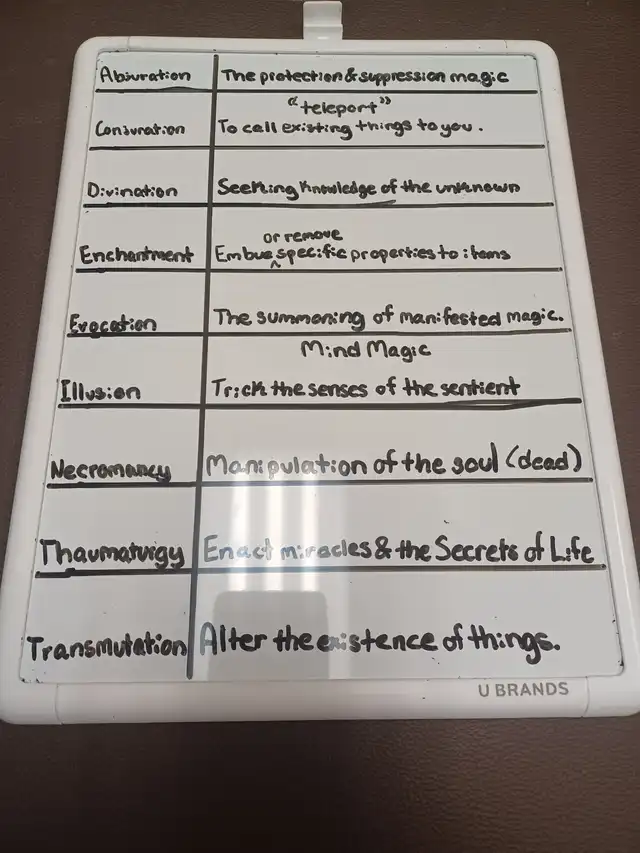 Abjuration The protection & suppression magic
"teleport"
Conjuration To call existing things to you.
Divination Seeking knowledge of the unknown
or remove
Enchantment Embue ^ specific properties to items
Evocation The summoning of manifested magic.
Mind Magic
Illusion Trick the senses of the sentient
Necromancy Manipulation of the soul (dead)
Thaumaturgy Enact miracles & the Secrets of Life
Transmutation Alter the existence of things.
U BRANDS